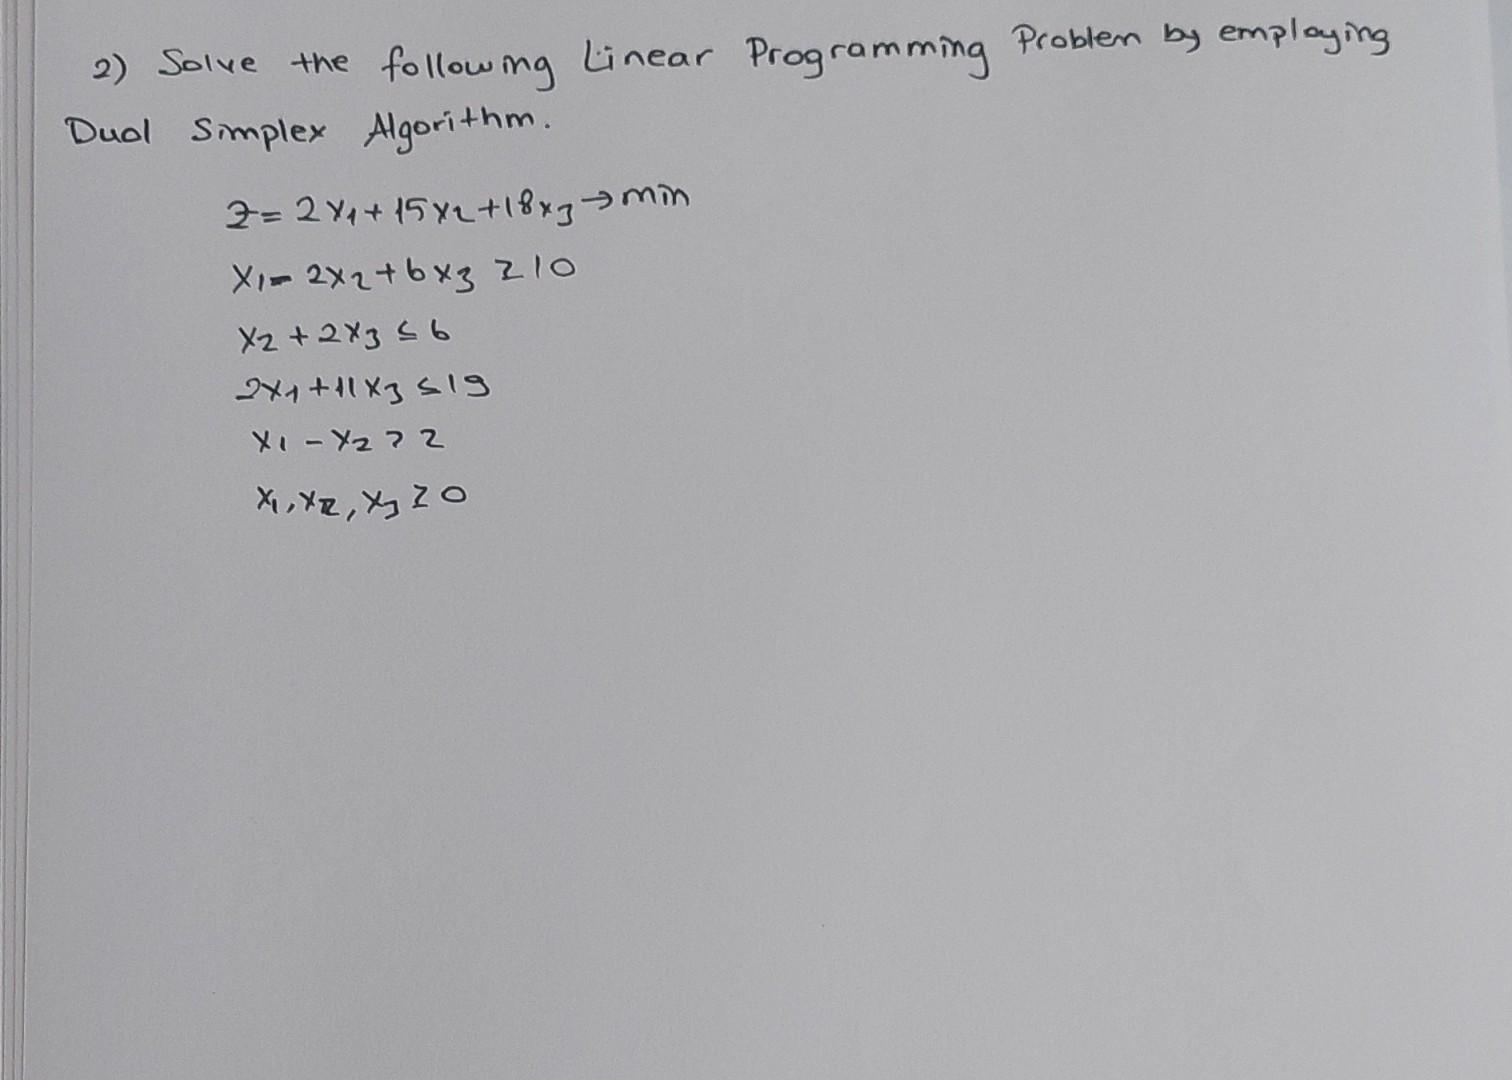 2) Solve the following Linear Programming Problem by employing
Dual Simplex Algorithm.
z = 2x₁ + 15x₂ + 18x₃ → min
x₁ - 2x₂ + 6x₃ ≥ 10
x₂ + 2x₃ ≤ 6
2x₁ + 11x₃ ≤ 19
x₁ - x₂ ≥ 2
x₁, x₂, x₃ ≥ 0